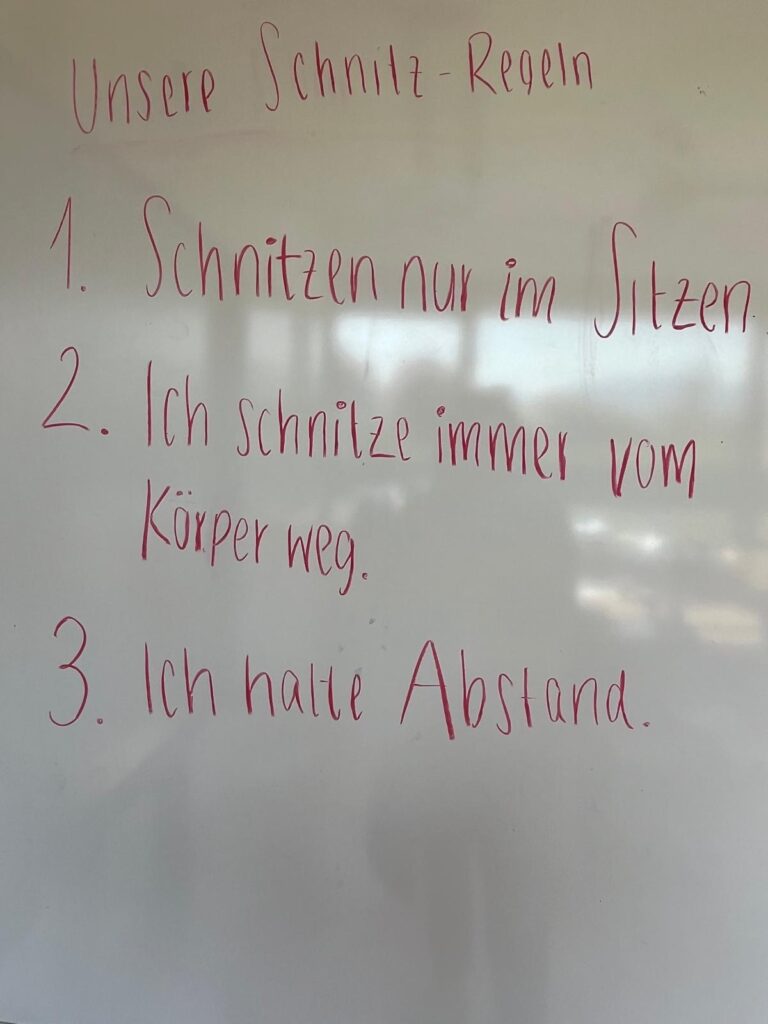 Unsere Schnitz-Regeln
1. Schnitzen nur im Sitzen.
2. Ich schnitze immer vom
Körper weg.
3. Ich halte Abstand.